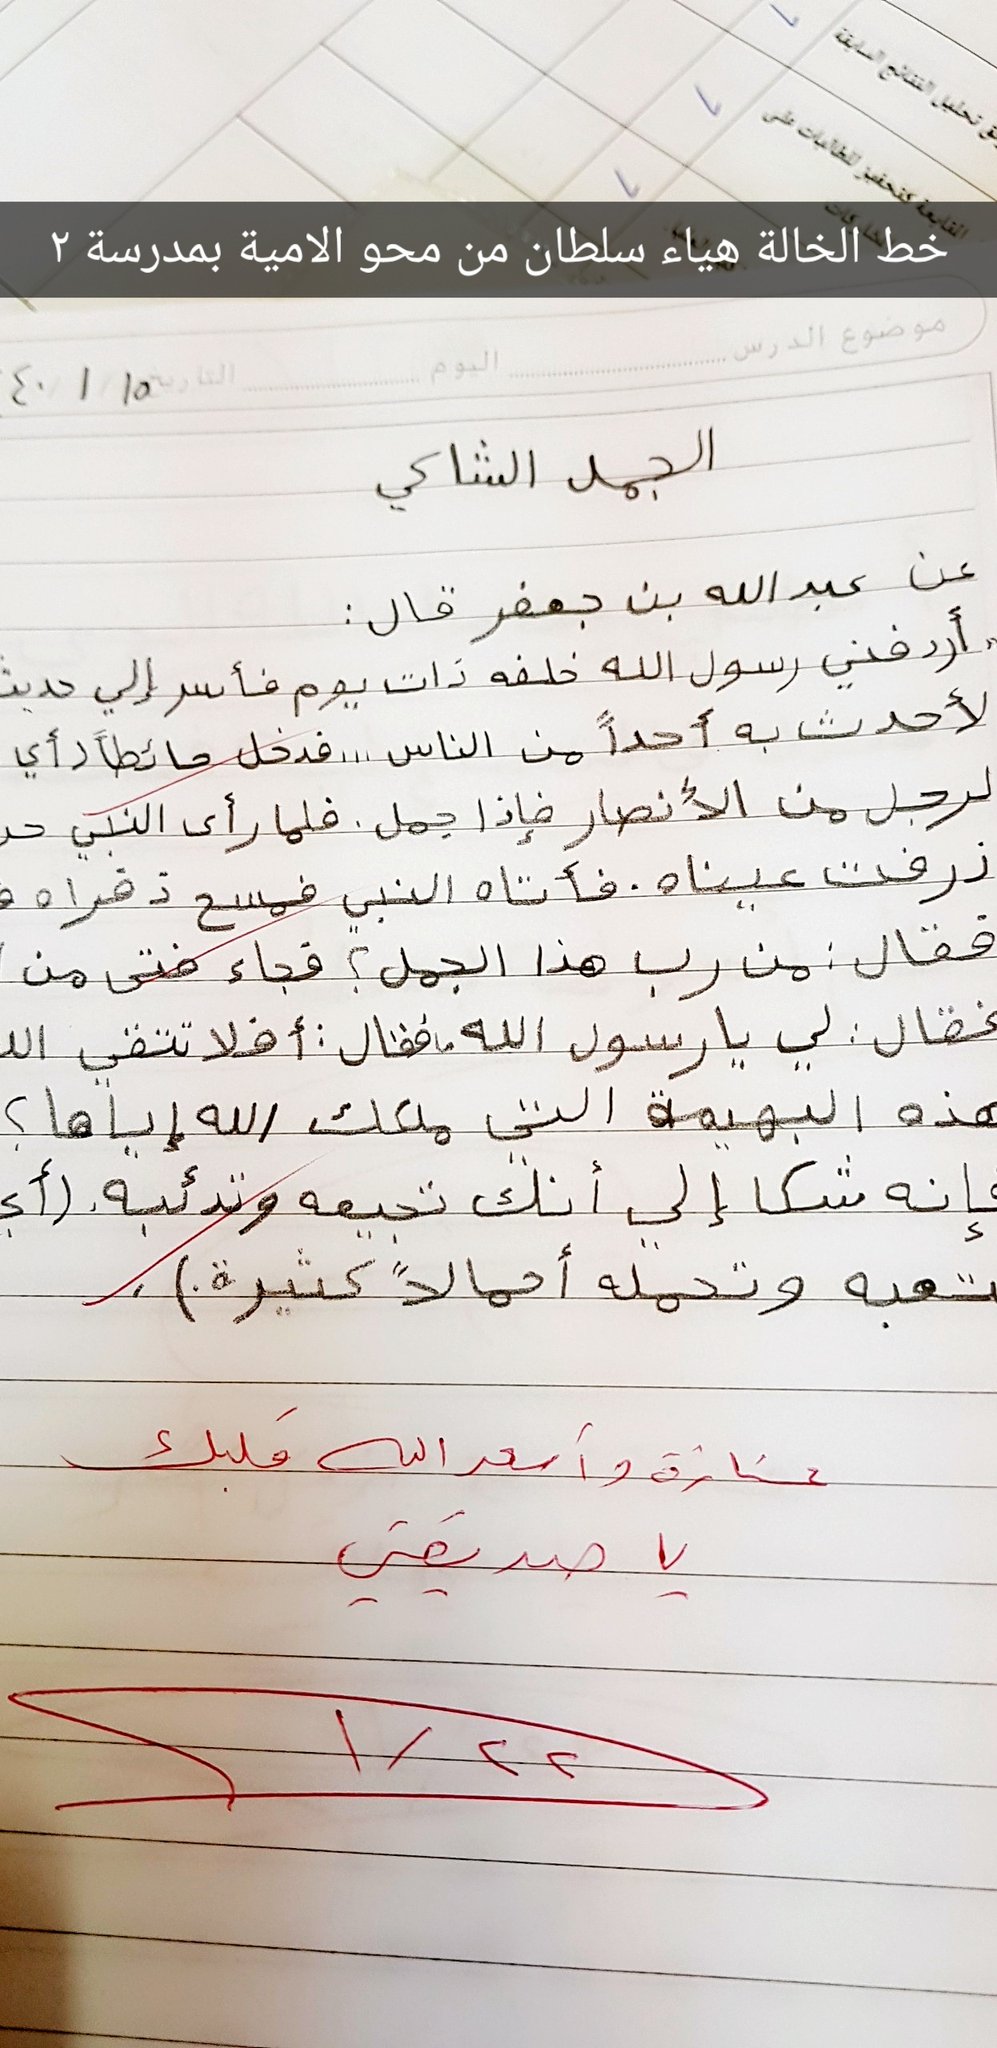 تحليل النتائج السابقة
المتابعة كتحفيز الطالبات على
خط الخالة هياء سلطان من محو الامية بمدرسة ٢
موضوع الدرس اليوم التاريخ ١٥ / ١ / ٤٠
الجمل الشاكي
عن عبد الله بن جعفر قال:
"أردفني رسول الله خلفه ذات يوم فأسر إلي حديث
لأحدث به أحداً من الناس ... فدخل حائطاً (أي
لرجل من الأنصار فإذا جمل. فلما رأى النبي
ذرفت عيناه. فأتاه النبي فمسح ذفراه
فقال: من رب هذا الجمل؟ فجاء فتى من
فقال: لي يا رسول الله. فقال: أفلا تتقي
هذه البهيمة التي ملكك الله إياها؟
فإنه شكا إلي أنك تجيعه وتدئبه. (أي
تتعبه وتحمله أحمالاً كثيرة.)
ممتازة وأسعد الله قلبك
يا صديقتي
٢٢ / ١